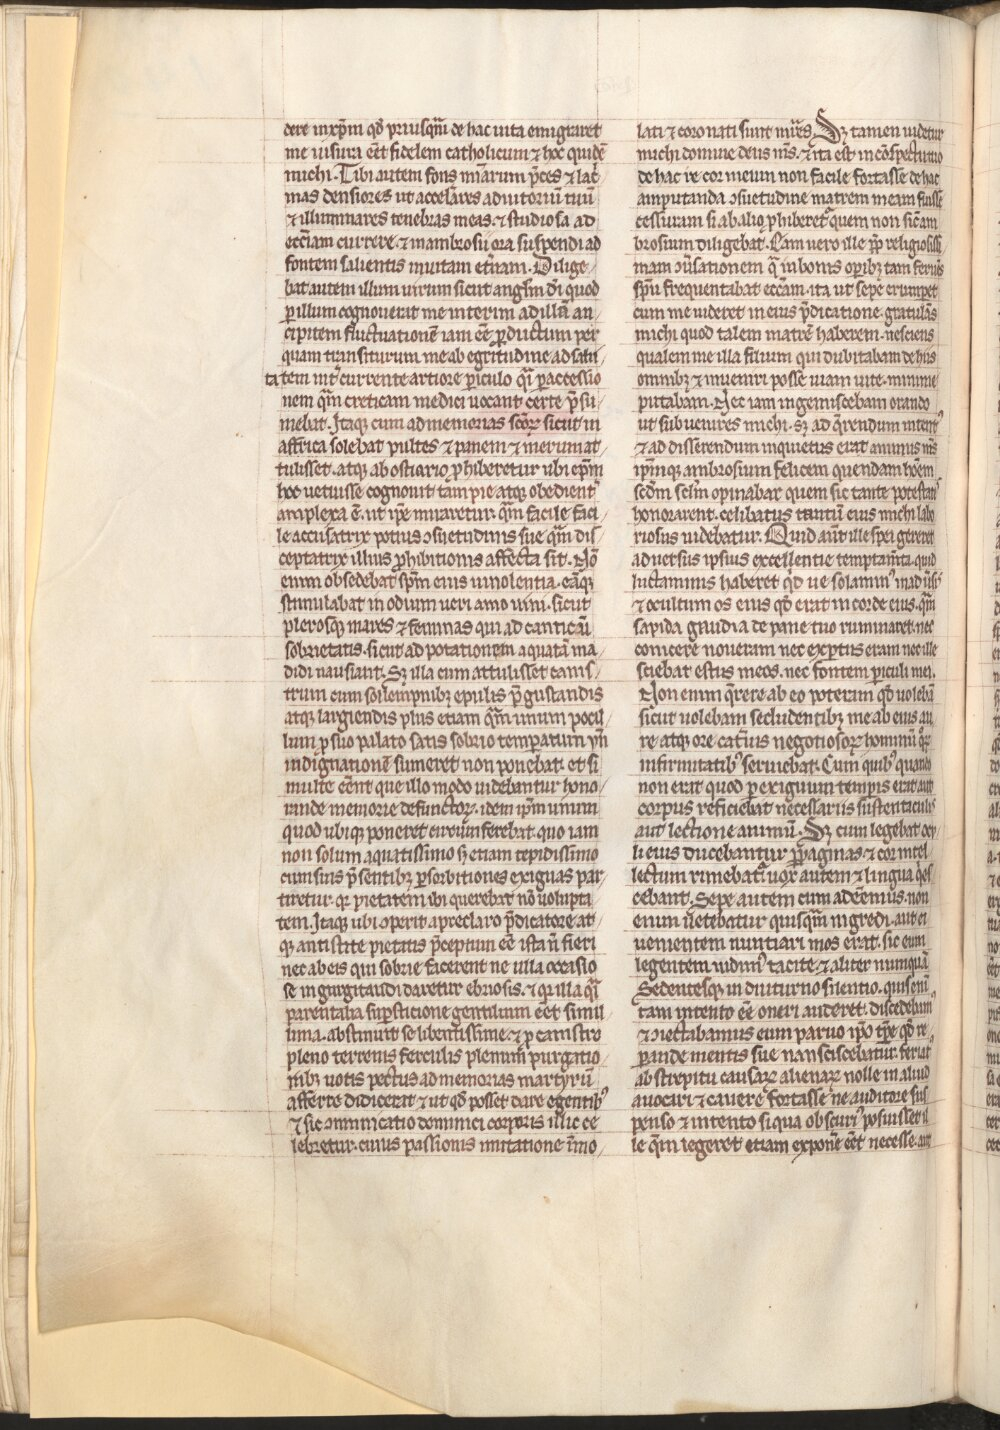 dere in xp̄m qđ priusqm̄ de hac uita emigraret
me uisura eēt fidelem catholicum ⁊ hoc quidē
michi. Tibi autem fons mīarum p̄ces ⁊ lac̄
mas densiores ut accelāres adiutoriū tuū
⁊ illuminares tenebras meas. ⁊ studiosa ad
ecc̄iam currere. ⁊ in ambrosii ora suspendi ad
fontem salientis in uitam et̄nam. Dilige
bat autem illum uirum sicut angłm dī quod
ꝑ illum cognouerat me interim ad illā an
cipitem fluctuationē iam eē ꝑductum per
quam transiturum me ab egritudine ad sani
tatem int̄currente artiore ꝑiculo q̄i ꝑ accessio
nem qm̄ creticam medici uocant certe p̄su
mebat. Itaqꝫ cum ad memorias sc̄oꝝ sicut in
affrica solebat pultes ⁊ panem ⁊ merum at
tulisset. atqꝫ ab ostiario ꝓhiberetur ubi ep̄m
hoc uetuisse cognouit tam pie atqꝫ obedient̾
amplexa ē. ut ip̄e miraretur. qm̄ facile faci
le accusatrix potius ↄsuetudinis sue qm̄ dis
ceptatrix illius ꝓhibitionis affecta sit. Nō
enim obsedebat sp̄m eius uinolentia. eāqꝫ
stimulabat in odium ueri amo uini. sicut
plerosqꝫ mares ⁊ feminas qui ad canticū
sobrietatis. sicut ad potationem aquatā ma
didi nausiant. Sꝫ illa cum attulisset canis
trum cum sollempnibꝫ epulis p̄gustandis
atqꝫ largiendis plus etiam qm̄ unum pocil
lum ꝓ suo palato satis sobrio temperatum ūn
indignationē sumeret non ponebat. et si
multe eēnt que illo modo uidebantur hono
rande memorie defunctoꝝ. idem ip̄m unum
quod ubiqꝫ poneret circūferebat. quo iam
non solum aquatissimo sꝫ etiam tepidissimo
cum suis p̄sentibꝫ ꝑ sorbitiones exiguas par
tiretur. qꝛ pietatem ibi querebat nō uolupta
tem. Itaqꝫ ubi ↄperit a preclaro p̄dicatore at
qꝫ antistite pietatis p̄ceptum eē ista n̄ fieri
nec ab eis qui sobrie facerent ne ulla occasio
se ingurgitandi daretur ebriosis. ⁊ qꝛ illa q̄i
parentalia suꝑstitione gentilium eēt simil
lima. abstinuit se libentissime. ⁊ ꝓ canistro
pleno terrenis ferculis plenum purgatio
nibꝫ uotis pectus ad memorias martyrū
afferre didicerat. ⁊ ut qđ posset dare egentibꝰ
⁊ sic ↄmunicatio dominici corporis illic ce
lebretur. cuius passionis imitatione īmo
lati ⁊ coronati sunt mr̄es. Sꝫ tamen uidetur
michi domine deus m̄s. ⁊ ita est in ↄspectu tuo
de hac re cor meum non facile fortasse de hac
amputanda ↄsuetudine matrem meam fuisse
cessuram si ab alio ꝓhiberet᷑ quem non sic am
brosium diligebat. Eam uero ille ꝓp̄ religiosissi
mam ↄūsationem q̄ in bonis oꝑibꝫ tam feruēs
sp̄u frequentabat eccām. ita ut sepe erumpet
cum me uideret in eius p̄dicatione. gratulās
michi quod talem matrē haberem. nesciens
qualem me illa filium qui dubitabam de hiis
omnibꝫ ⁊ inueniri posse uiam uite. minime
putabam. Nec iam ingemiscebam orando
ut subuenires michi. sꝫ ad q̄rendum intent̾
⁊ ad disserendum inquietus erat animus m̄s
ip̄mqꝫ ambrosium felicem quendam hoēm
scd̄m scłm opinabar quem sic tante potestat̾
honorarent. celibatus tantū eius michi labo
riosus uidebatur. Quid aūt ille spei gereret
aduersus ipsius excellentie temptam̄ta quid
luctaminis haberet qđ ue solamin̾ in adusis
⁊ ocultum os eius qđ erat in corde eius. qm̄
sapida gaudia de pane tuo ruminaret. nec
conicere noueram nec exꝑtus eram nec ille
sciebat estus meos. nec fontem ꝑiculi mei.
Non enim q̄rere ab eo poteram qđ uolebā
sicut uolebam secludentibꝫ me ab eius au
re atqꝫ ore cat̄uis negotiosoꝝ hominū qꝛ
infirmitatibꝰ seruiebat. Cum quibꝰ quando
non erat quod ꝑ exiguum temporis erat aut
corpus reficiebat necessariis sustentaculis
aut lectione animū. Sꝫ cum legebat ocu
li eius ducebantur ꝑ paginas. ⁊ cor intel
lectum rimebat᷑ uox autem ⁊ lingua q̄es
cebant. Sepe autem cum adeēmus. non
enim uetebatur quisqm̄ ingredi. aut ei
uenientem nuntiari mos erat. sic eum
legentem uidim̾ tacite. ⁊ aliter numquā
Sedentesqꝫ in diuturno silentio. quis enī
tam intento eē oneri auderet. discedebam̾
⁊ ↄiectabamus eum paruo ip̄o tp̄e qđ re
ꝑande mentis sue nanciscebatur. feriat᷑
ab strepitu causaꝝ alienaꝝ nolle in aliud
auocari ⁊ cauere fortasse ne auditore sus
penso ⁊ intento siqua obscuri᷑ posuisset il
le qm̄ legeret etiam expone eēt necesse. aut